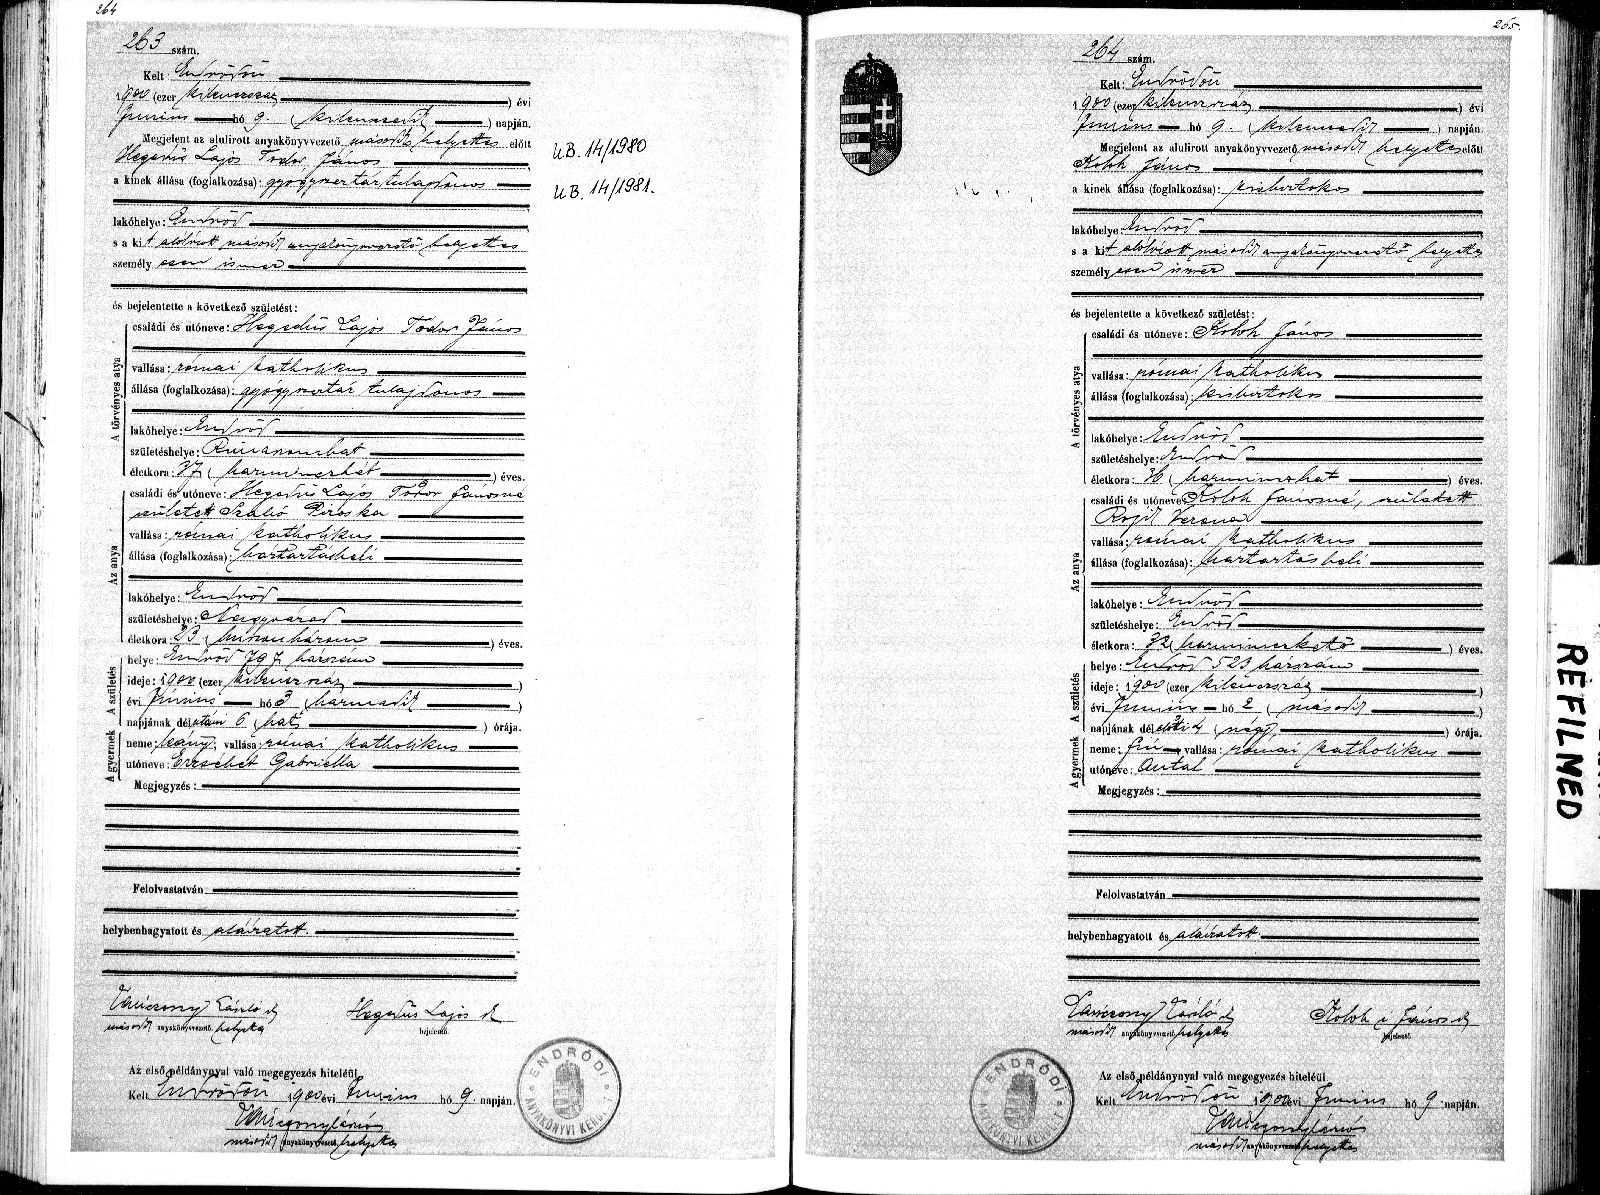 264
263 szám.
Kelt Endrődön
1900 (ezer kilenczszáz ) évi
Junius hó 9. ( kilenczedik ) napján.
Megjelent az alulirott anyakönyvvezető második helyettes előtt
Hegedüs Lajos Todor János
a kinek állása (foglalkozása): gyógyszertártulajdonos
lakóhelye: Endrőd
s a kit alólirott másodk anyakönyvvezető helyettes
személyesen ismer
és bejelentette a következő születést:
A törvényes atya
családi és utóneve: Hegedüs Lajos Todor János
vallása: római katholikus
állása (foglalkozása): gyógyszertár tulajdonos
lakóhelye: Endrőd
születéshelye: Rimaszombat
életkora: 37 ( harminczhét ) éves.
Az anya
családi és utóneve: Hegedüs Lajos Todor Jánosné
született Szabó Piroska
vallása: római katholikus
állása (foglalkozása): háztartásbeli
lakóhelye: Endrőd
születéshelye: Nagyvárad
életkora: 23 ( huszonhárom ) éves.
A születés
helye: Endrőd házszám
ideje: 1900 (ezer kilenczszáz )
évi Junius hó 3 ( harmadik )
napjának délután 6 ( hat ) órája.
A gyermek
neme: leány; vallása: római katholikus
utóneve: Erzsébet Gabriella
Megjegyzés:
Felolvastatván
helybenhagyatott és aláiratott.
László
másodk anyakönyvvezető helyettes
Hegedüs Lajos
bejelentő
Az első példánynyal való megegyezés hiteléül.
Kelt Endrődön 1900 évi Junius hó 9 napján.
másodk anyakönyvvezető helyettes
ENDRŐDI ANYAKÖNYVI KERÜLET
UB. 14/1980
UB. 14/1981.
265.
264 szám.
Kelt: Endrődön
1900 (ezer kilenczszáz ) évi
Junius hó 9. ( kilenczedik ) napján.
Megjelent az alulirott anyakönyvvezető másodk helyettes előtt
János
a kinek állása (foglalkozása): kisbirtokos
lakóhelye: Endrőd
s a kit alólirott másodk anyakönyvvezető helyettes
személyesen ismer
és bejelentette a következő születést:
A törvényes atya
családi és utóneve: János
vallása: római katholikus
állása (foglalkozása): kisbirtokos
lakóhelye: Endrőd
születéshelye: Endrőd
életkora: 36 ( harminczhat ) éves.
Az anya
családi és utóneve: Jánosné, született
Verona
vallása: római katholikus
állása (foglalkozása): háztartásbeli
lakóhelye: Endrőd
születéshelye: Endrőd
életkora: 32 ( harminczkettő ) éves.
A születés
helye: Endrőd 523 házszám
ideje: 1900 (ezer kilenczszáz )
évi Junius hó 2 ( második )
napjának délelőtti 4 ( négy ) órája.
A gyermek
neme: fiu vallása: római katholikus
utóneve: Antal
Megjegyzés:
Felolvastatván
helybenhagyatott és aláiratott.
László
másodk anyakönyvvezető helyettes
János
bejelentő
Az első példánynyal való megegyezés hiteléül.
Kelt Endrődön 1900 évi Junius hó 9 napján.
másodk anyakönyvvezető helyettes
ENDRŐDI ANYAKÖNYVI KERÜLET
REFILMED